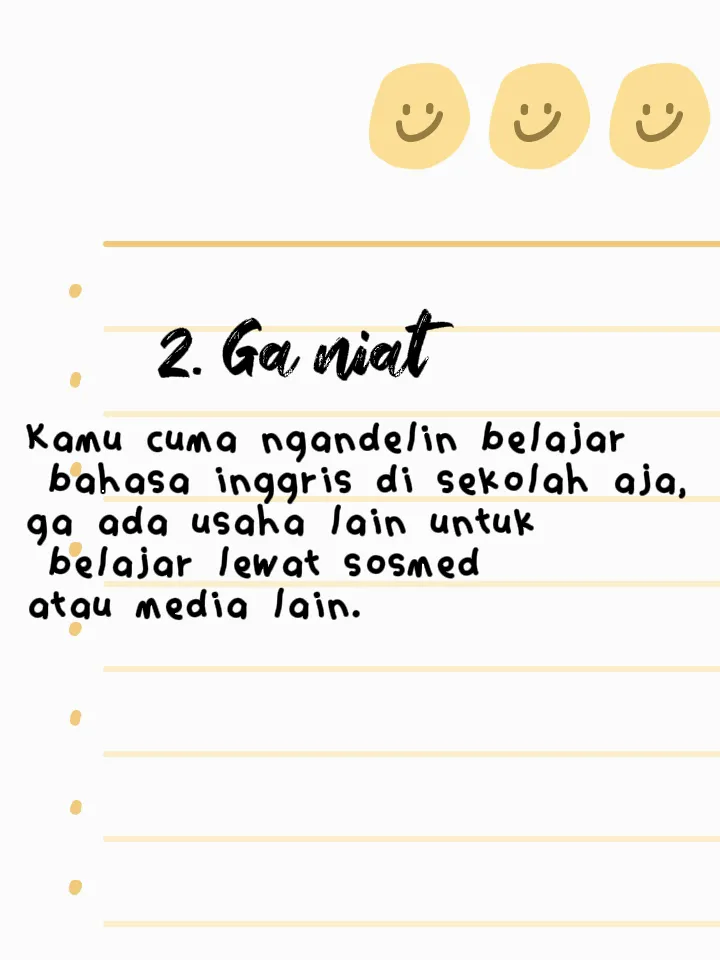 2. Ga niat
Kamu cuma ngandelin belajar
bahasa inggris di sekolah aja,
ga ada usaha lain untuk
belajar lewat sosmed
atau media lain.